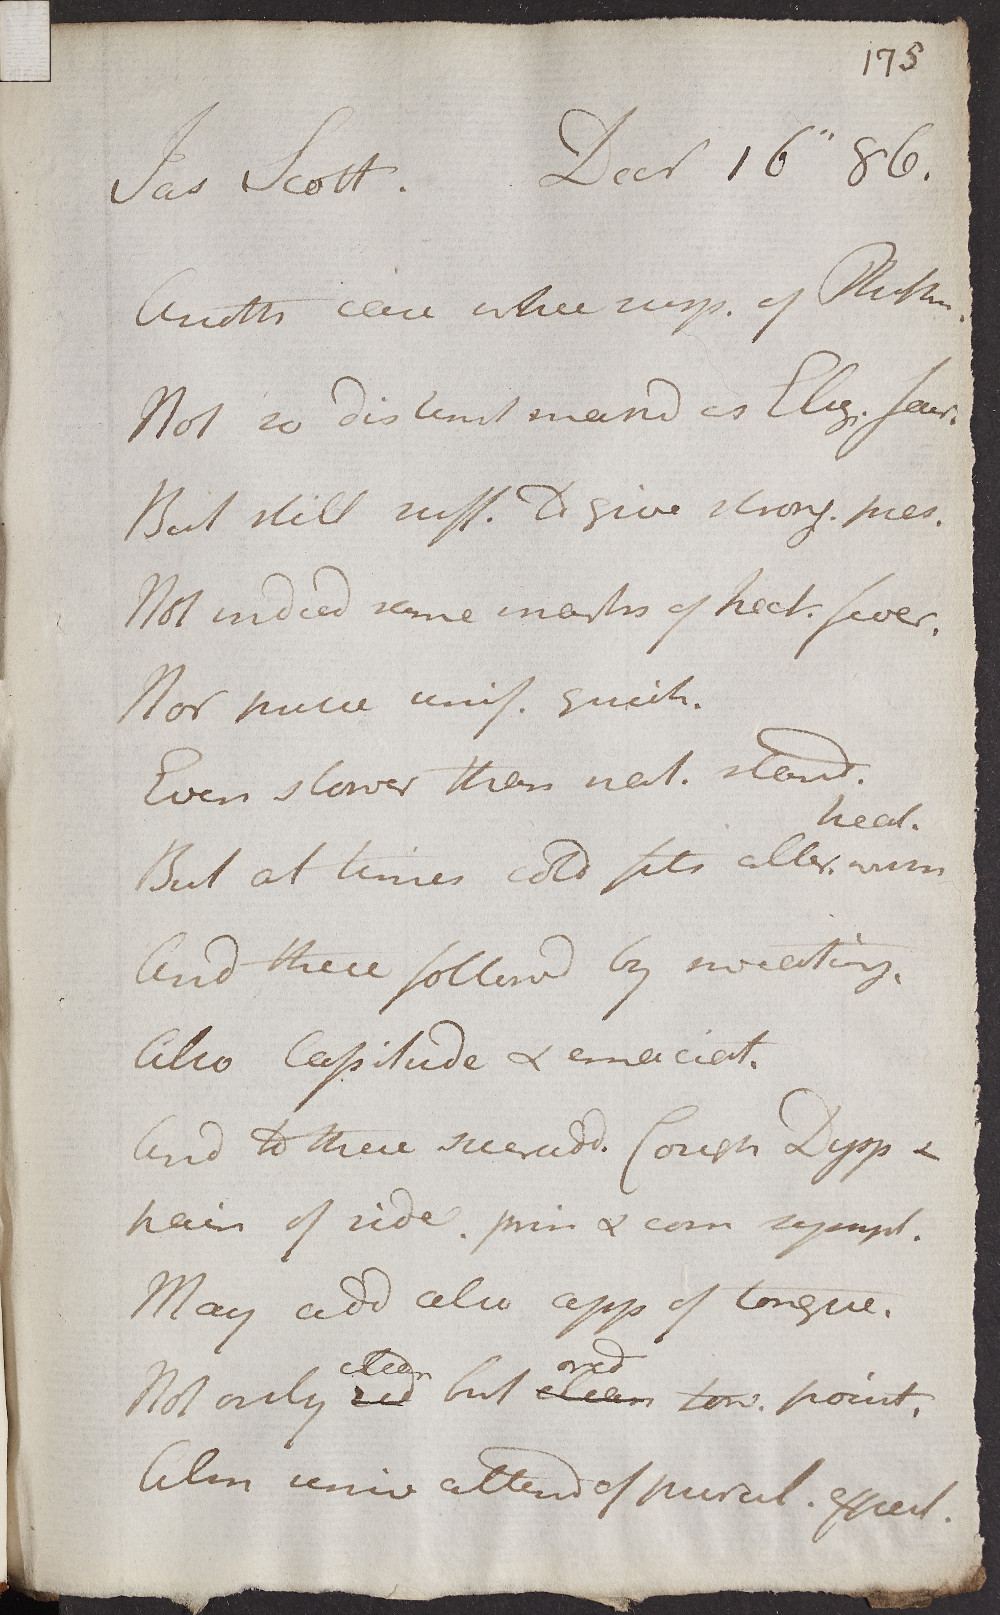 175
Jas Scott. Decr 16" 86.
Anothr case where susp. of Phthis.
Not so distinct mark'd as Eliz.
But still suff. To give strong. pres.
Not indeed same marks of hect. fever.
Nor pulse unif. quick.
Even slower than nat. stand.
heat.
But at times cold fits alter. with
And these followd by sweating.
Also Lassitude & emaciat.
And to these superadd. Cough Dysp &
pain of side. prin & com sympt.
May add also app of tongue.
clean red
Not only red but clean tow. point.
Alm univ attend of purul. expect.